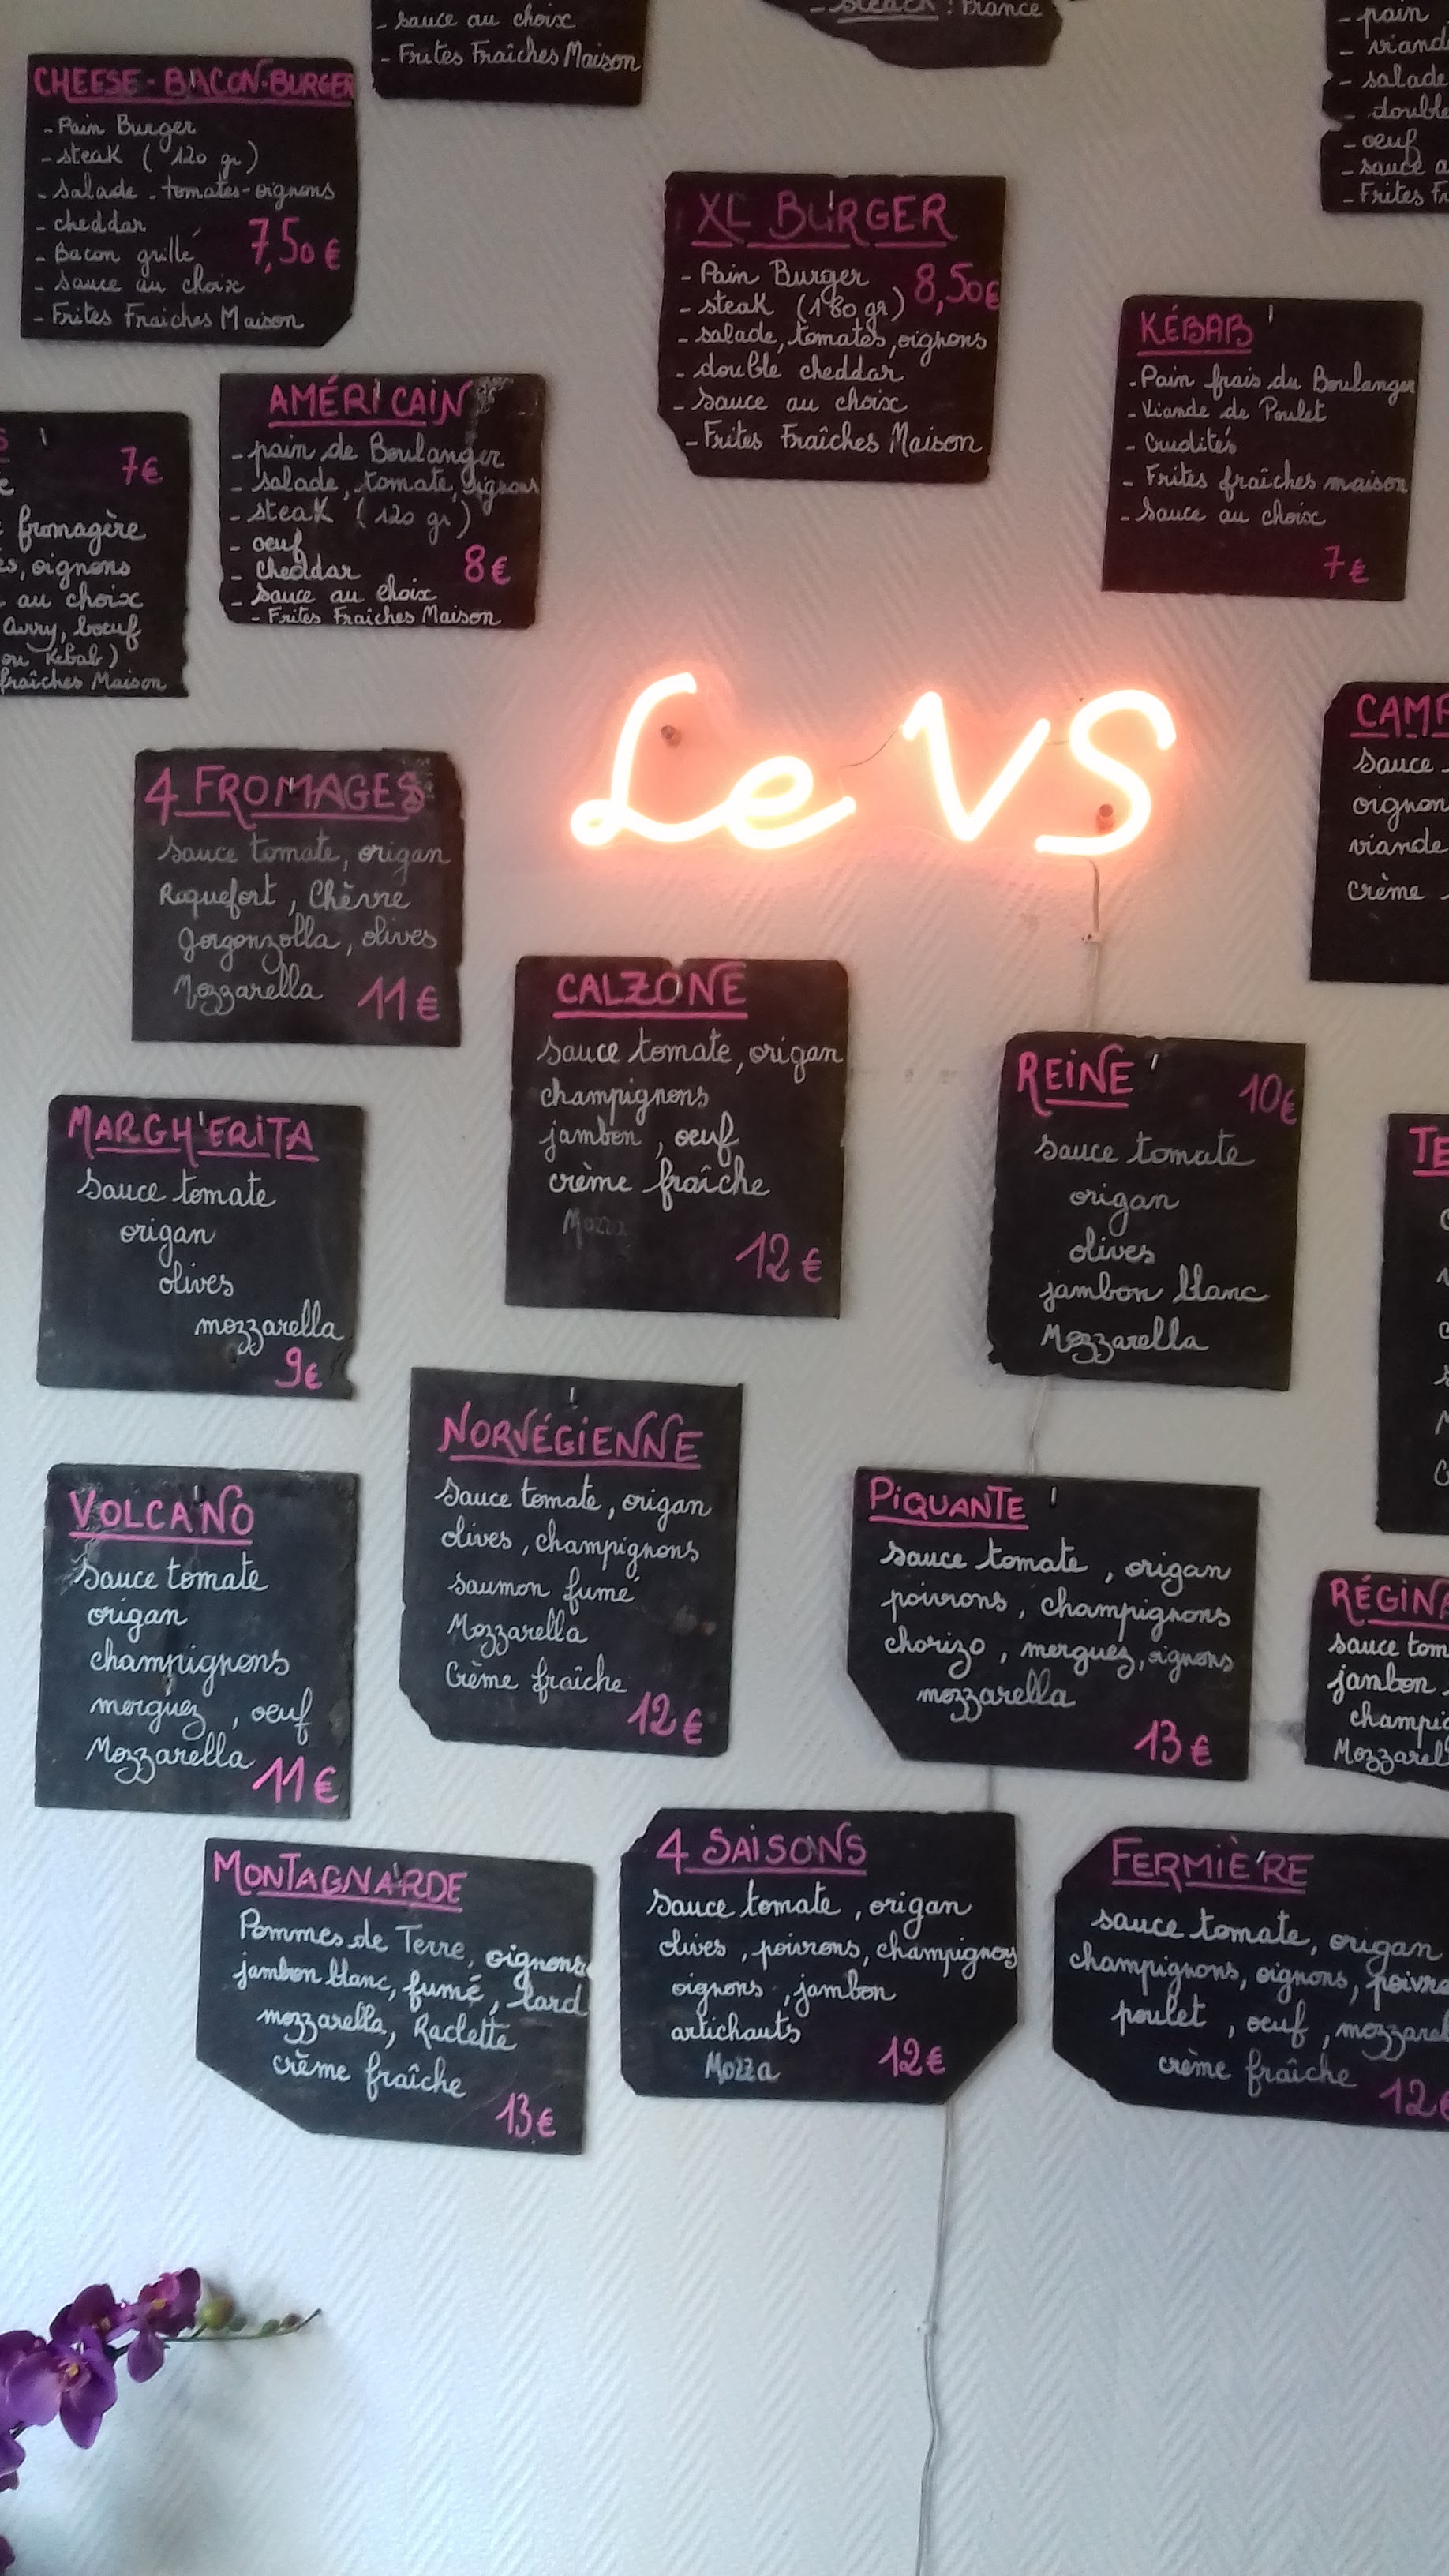 - sauce au choix
- Frites Fraîches Maison
- Steack : France
- pain
- viand
- salade
- double
- oeuf
- sauce a
- Frites Fr
CHEESE-BACON-BURGER
- Pain Burger
- steak (120 gr)
- salade - tomates-oignons
- cheddar
- Bacon grillé
7,50€
- sauce au choix
- Frites Fraiches Maison
XL BURGER
- Pain Burger
8,50€
- steak (180 gr)
- salade, tomates, oignons
- double cheddar
- sauce au choix
- Frites Fraîches Maison
KÉBAB
- Pain frais du Boulanger
- Viande de Poulet
- Crudités
- Frites fraîches maison
- Sauce au choix
7€
AMÉRICAIN
- pain de Boulanger
- salade, tomate, oignons
- steak (120 gr)
- oeuf
- cheddar
8€
- sauce au choix
- Frites Fraîches Maison
7€
fromagère
oignons
au choix
boeuf
ou Kebab)
fraîches Maison
Le VS
4 FROMAGES
Sauce tomate, origan
Roquefort, Chèvre
Gorgonzolla, olives
Mozzarella
11€
CAMP
Sauce
oignon
viande
Crème
CALZONE
Sauce tomate, origan
champignons
jambon, oeuf
crème fraîche
Mozza
12€
REINE
10€
sauce tomate
origan
olives
jambon blanc
Mozzarella
MARGH'ERITA
Sauce tomate
origan
olives
mozzarella
9€
TE
NORVÉGIENNE
Sauce tomate, origan
olives, champignons
saumon fumé
Mozzarella
Crème fraîche
12€
VOLCANO
Sauce tomate
origan
champignons
merguez, oeuf
Mozzarella
11€
PIQUANTE
sauce tomate, origan
poivrons, champignons
chorizo, merguez, oignons
mozzarella
13€
RÉGINA
sauce tom
jambon
champig
Mozzarel
MONTAGNARDE
Pommes de Terre, oignons
jambon blanc, fumé, lard
mozzarella, Raclette
crème fraîche
13€
4 SAISONS
sauce tomate, origan
olives, poivrons, champignons
oignons, jambon
artichauts
Mozza
12€
FERMIÈRE
sauce tomate, origan
champignons, oignons, poivro
poulet, oeuf, mozzarel
crème fraîche
12€